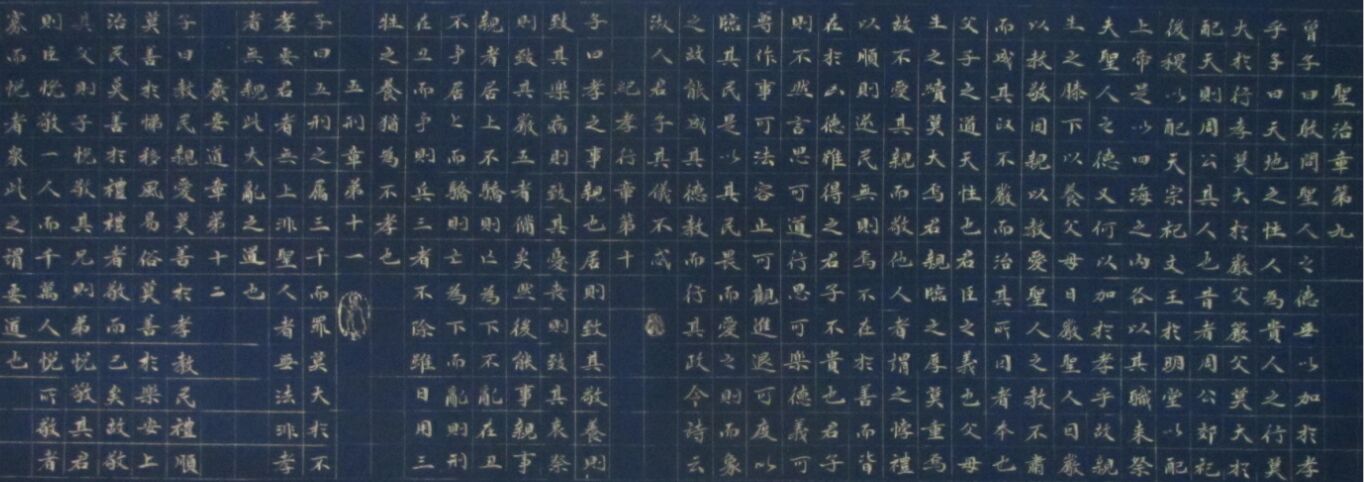 聖治章第九
曾子曰敢問聖人之德無以加於孝
乎子曰天地之性人為貴人之行莫
大於行孝莫大於嚴父嚴父莫大於
配天則周公其人也昔者周公郊祀
後稷以配天宗祀文王於明堂以配
上帝是以四海之內各以其職来祭
夫聖人之德又何以加於孝乎故親
生之膝下以養父母日嚴聖人日嚴
以教敬因親以教愛聖人之教不肅
而成其政不嚴而治其所因者本也
父子之道天性也君臣之義也父母
生之續莫大焉君親臨之厚莫重焉
故不愛其親而敬他人者謂之悖禮
以順則逆民無則焉不在於善而皆
在於凶德雖得之君子不貴也君子
則不然言思可道行思可樂德義可
尊作事可法容止可觀進退可度以
臨其民是以其民畏而愛之則而象
之故能成其德教而行其政令詩云
淑人君子其儀不忒
紀孝行章第十
子曰孝之事親也居則致其敬養則
致其樂病則致其憂喪則致其哀祭
則致其嚴五者備矣然後能事親事
親者居上不驕則亡為下不亂在丑
不爭居上而驕則亡為下而亂則刑
在丑而爭則兵三者不除雖日用三
牲之養猶為不孝也
五刑章第十一
子曰五刑之屬三千而罪莫大於不
孝要君者無上非聖人者無法非孝
者無親此大亂之道也
廣要道章第十二
子曰教民親愛莫善於孝教民禮順
莫善於悌移風易俗莫善於樂安上
治民莫善於禮禮者敬而已矣故敬
其父則子悅敬其兄則弟悅敬其君
則臣悅敬一人而千萬人悅所敬者
寡而悅者眾此之謂要道也